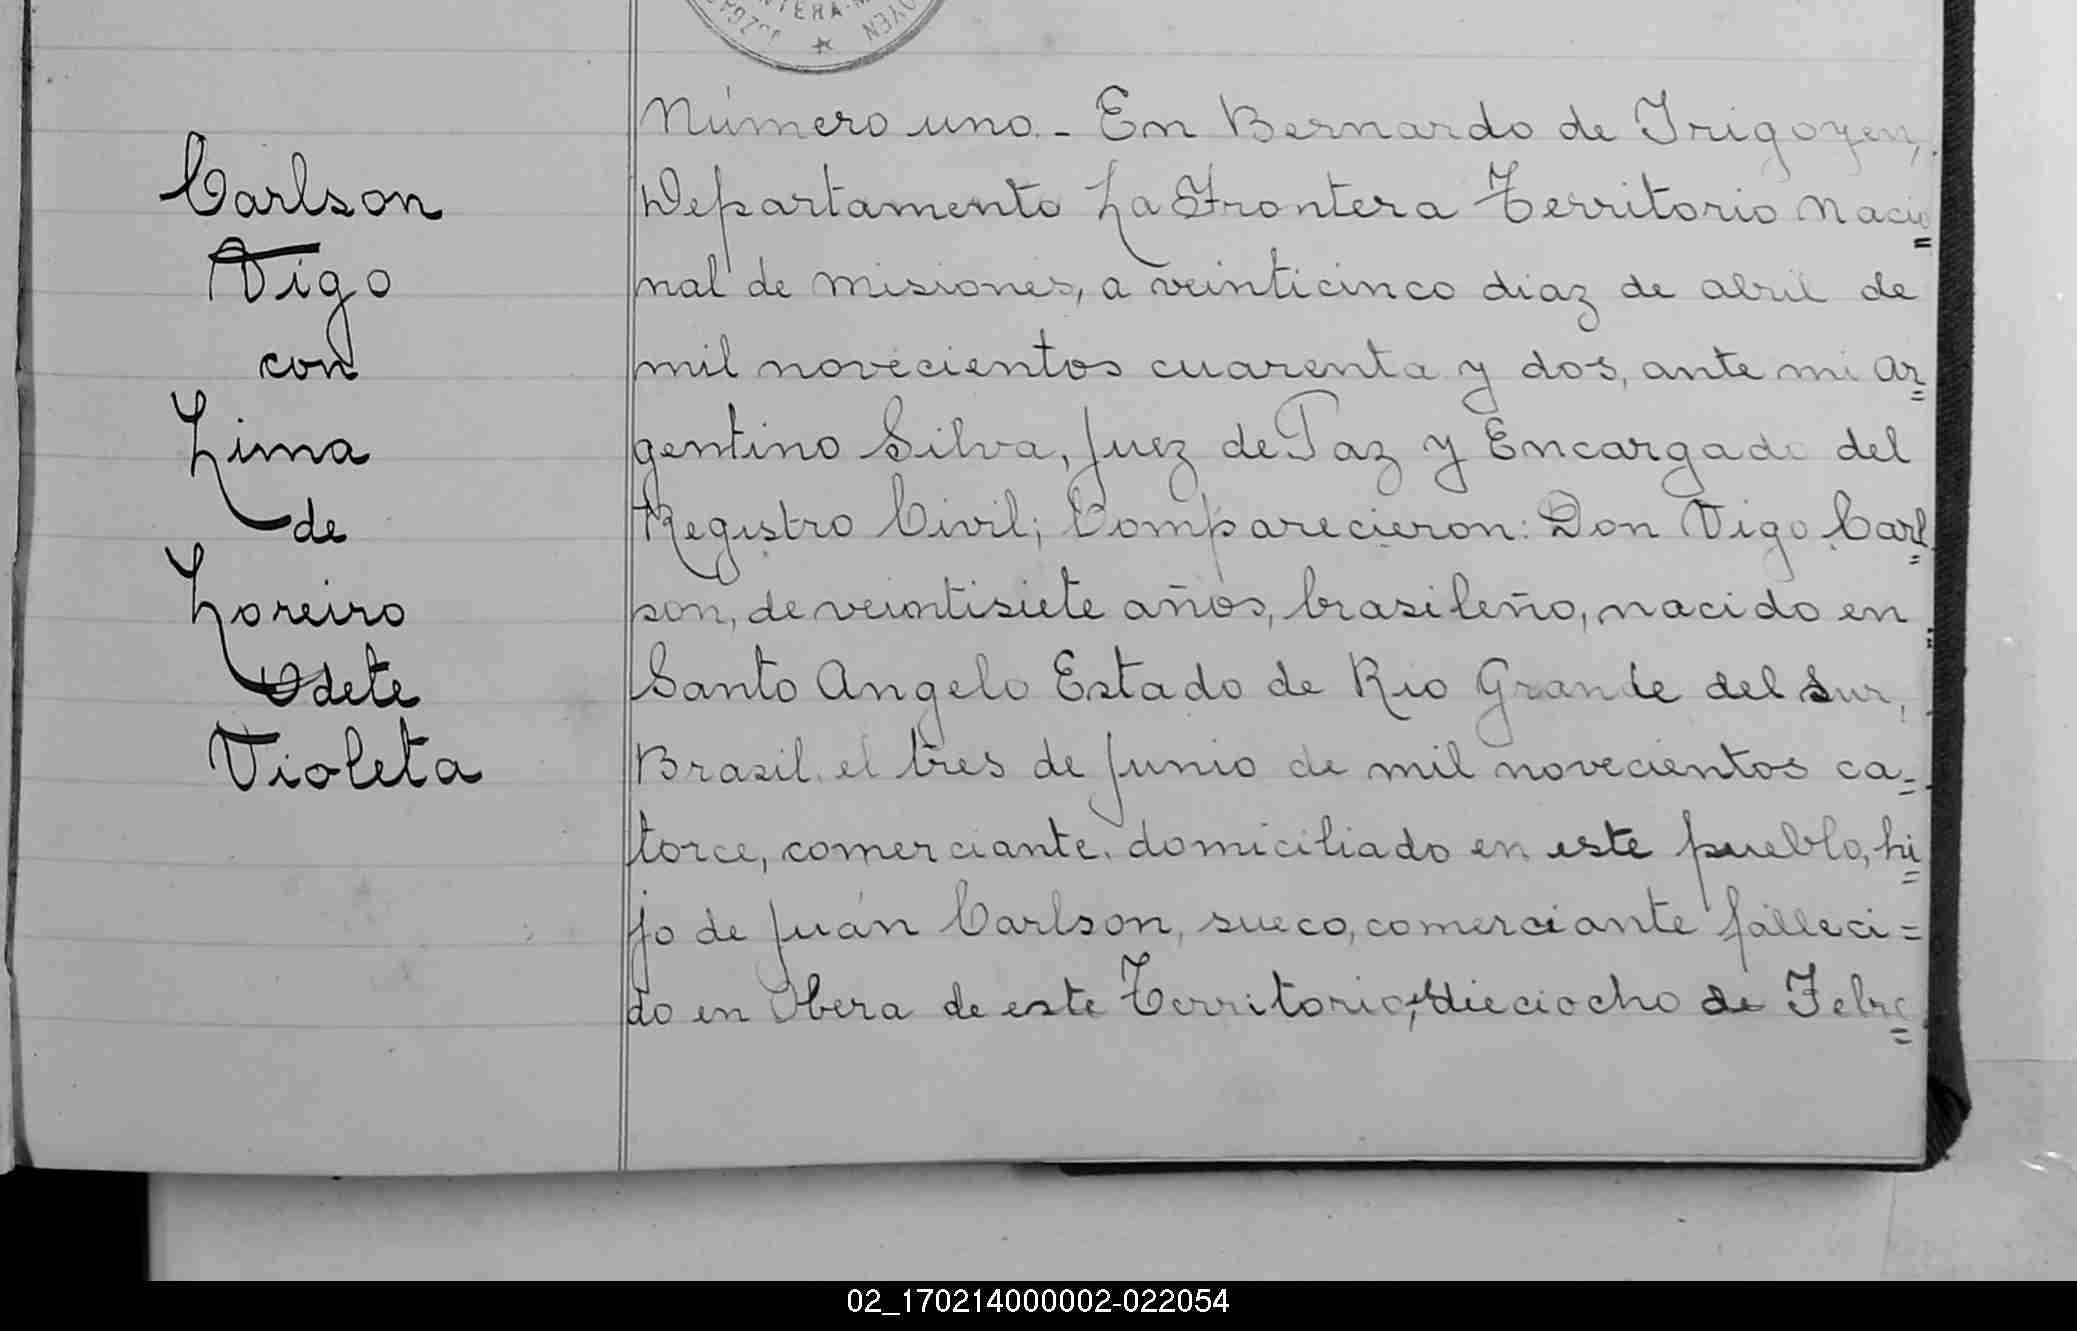 Carlson
Vigo
con
Lima
de
Loreiro
Odete
Violeta
Número uno.- En Bernardo de Irigoyen,
Departamento La Frontera Territorio Nacio=
nal de misiones, a veinticinco diaz de abril de
mil novecientos cuarenta y dos, ante mi Ar=
gentino Silva, Juez de Paz y Encargado del
Registro Civil; Comparecieron: Don Vigo Carl=
son, de veintisiete años, brasileño, nacido en
Santo Angelo Estado de Rio Grande del Sur,
Brasil. el tres de Junio de mil novecientos ca=
torce, comerciante. domiciliado en este pueblo, hi=
jo de Juán Carlson, sueco, comerciante falleci=
do en Obera de este Territorio, dieciocho de Febre=
02_170214000002-022054